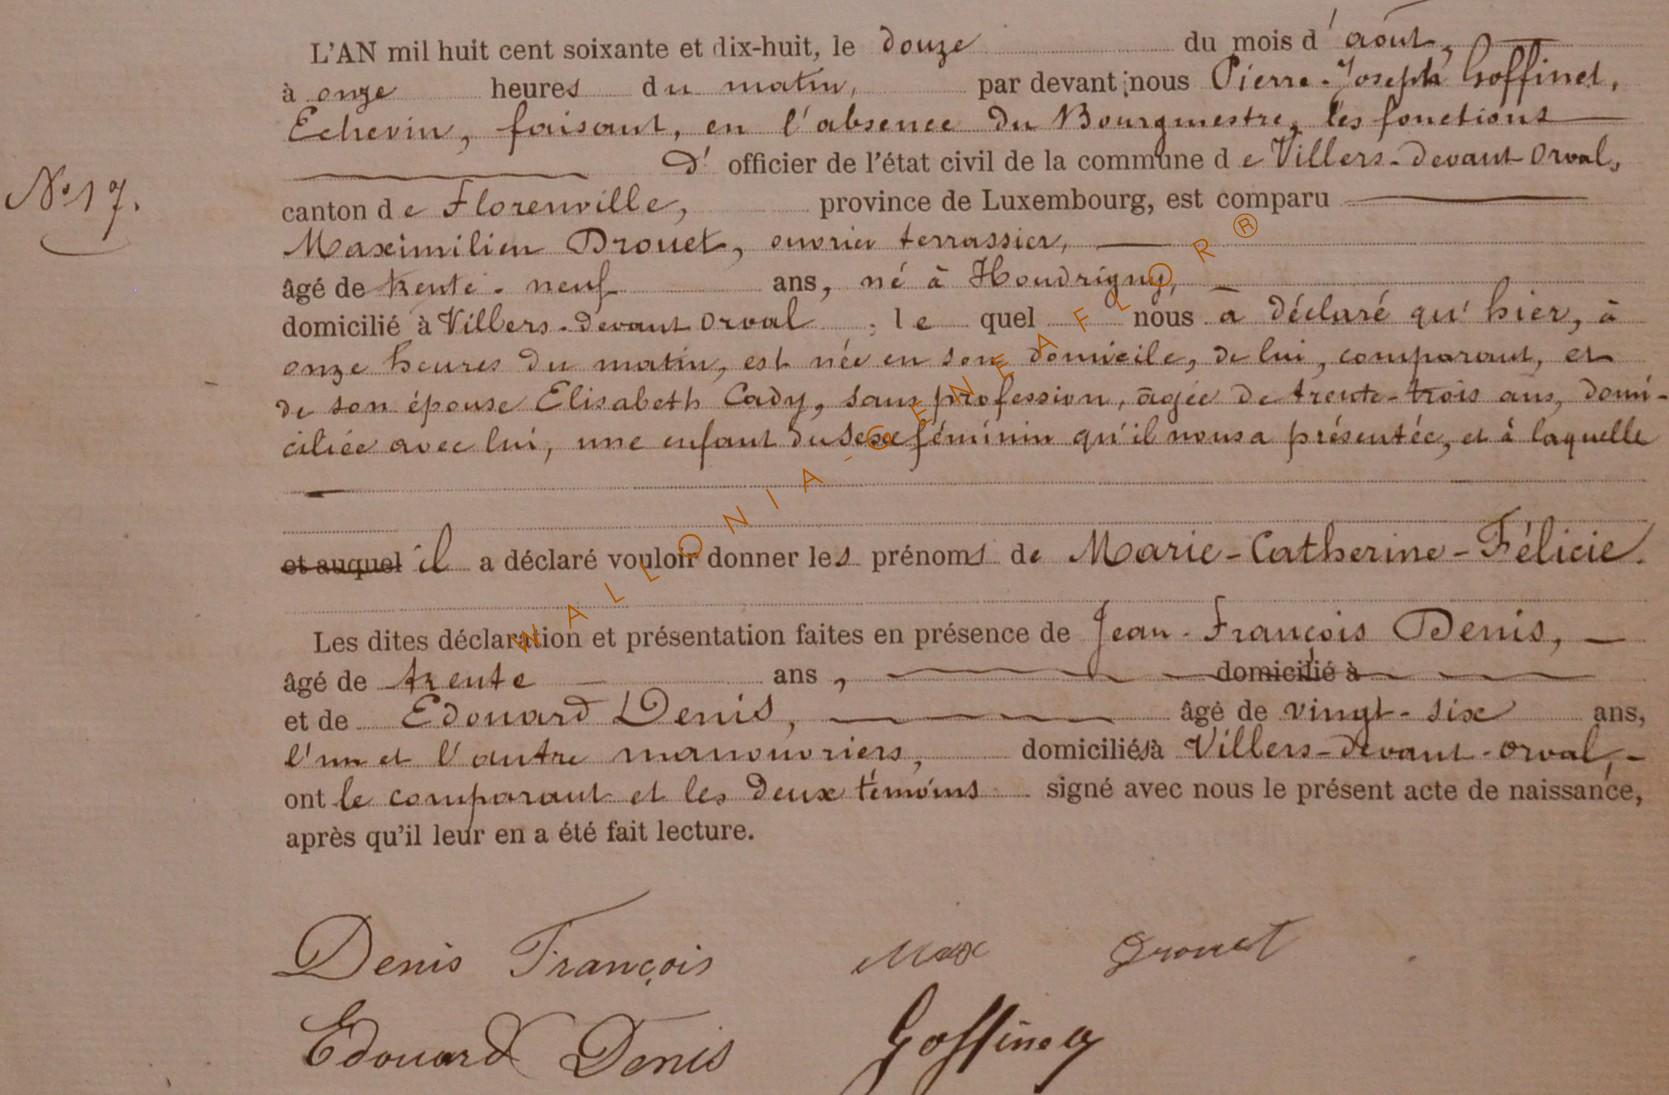 L'AN mil huit cent soixante et dix-huit, le douze du mois d'août,
à onze heures du matin, par devant nous Pierre-Joseph Goffinet,
Echevin, faisant, en l'absence du Bourgmestre, les fonctions
d'officier de l'état civil de la commune de Villers-devant-Orval,
N° 17.
canton de Florenville, province de Luxembourg, est comparu
Maximilien Drouet, ouvrier terrassier,
âgé de trente-neuf ans, né à Houdrigny,
domicilié à Villers-devant Orval ; lequel nous a déclaré qu'hier, à
onze heures du matin, est née en son domicile, de lui, comparant, et
de son épouse Elisabeth Cady, sans profession, âgée de trente-trois ans, domi-
ciliée avec lui, une enfant du sexe féminin qu'il nous a présentée, et à laquelle
et auquel il a déclaré vouloir donner les prénoms de Marie-Catherine-Félicie.
Les dites déclaration et présentation faites en présence de Jean-François Denis,
âgé de trente ans, domicilié à
et de Edouard Denis, âgé de vingt-six ans,
l'un et l'autre manouvriers, domiciliés à Villers-devant-Orval,
ont le comparant et les deux témoins signé avec nous le présent acte de naissance,
après qu'il leur en a été fait lecture.
Denis François Max Drouet
Edouard Denis Goffinet
WALLONIA-GENEAFLOR®